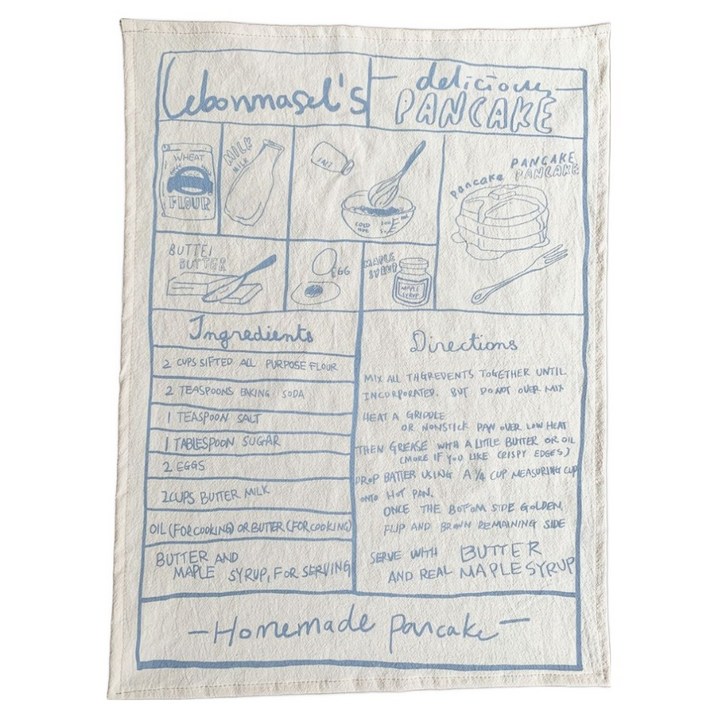 Lebonmasel's
delicious
PANCAKE
WHEAT
FLOUR
MILK
MILK
PANCAKE
PANCAKE
pancake
BUTTEL
BUTTER
EGG
MAPLE
SYRUP
MAPLE
SYRUP
Ingredients
2 CUPS SIFTED ALL PURPOSE FLOUR
2 TEASPOONS BAKING SODA
1 TEASPOON SALT
1 TABLESPOON SUGAR
2 EGGS
2 CUPS BUTTER MILK
OIL (FOR COOKING) OR BUTTER (FOR COOKING)
BUTTER AND
MAPLE SYRUP, FOR SERVING
Directions
MIX ALL THGREVENTS TOGETHER UNTIL
INCORPORATED. BUT DO NOT OVER MIX
HEAT A GRIDDLE
OR NONSTICK PAN OVER LOW HEAT
THEN GREASE WITH A LITTLE BUTTER OR OIL
(MORE IF YOU LIKE CRISPY EDGES)
DROP BATTER USING A 1/4 CUP MEASURING CUP
ONTO HOT PAN.
ONCE THE BOTTOM SIDE GOLDEN,
FLIP AND BROWN REMAINING SIDE
SERVE WITH BUTTER
AND REAL MAPLE SYRUP
-Homemade pancake-